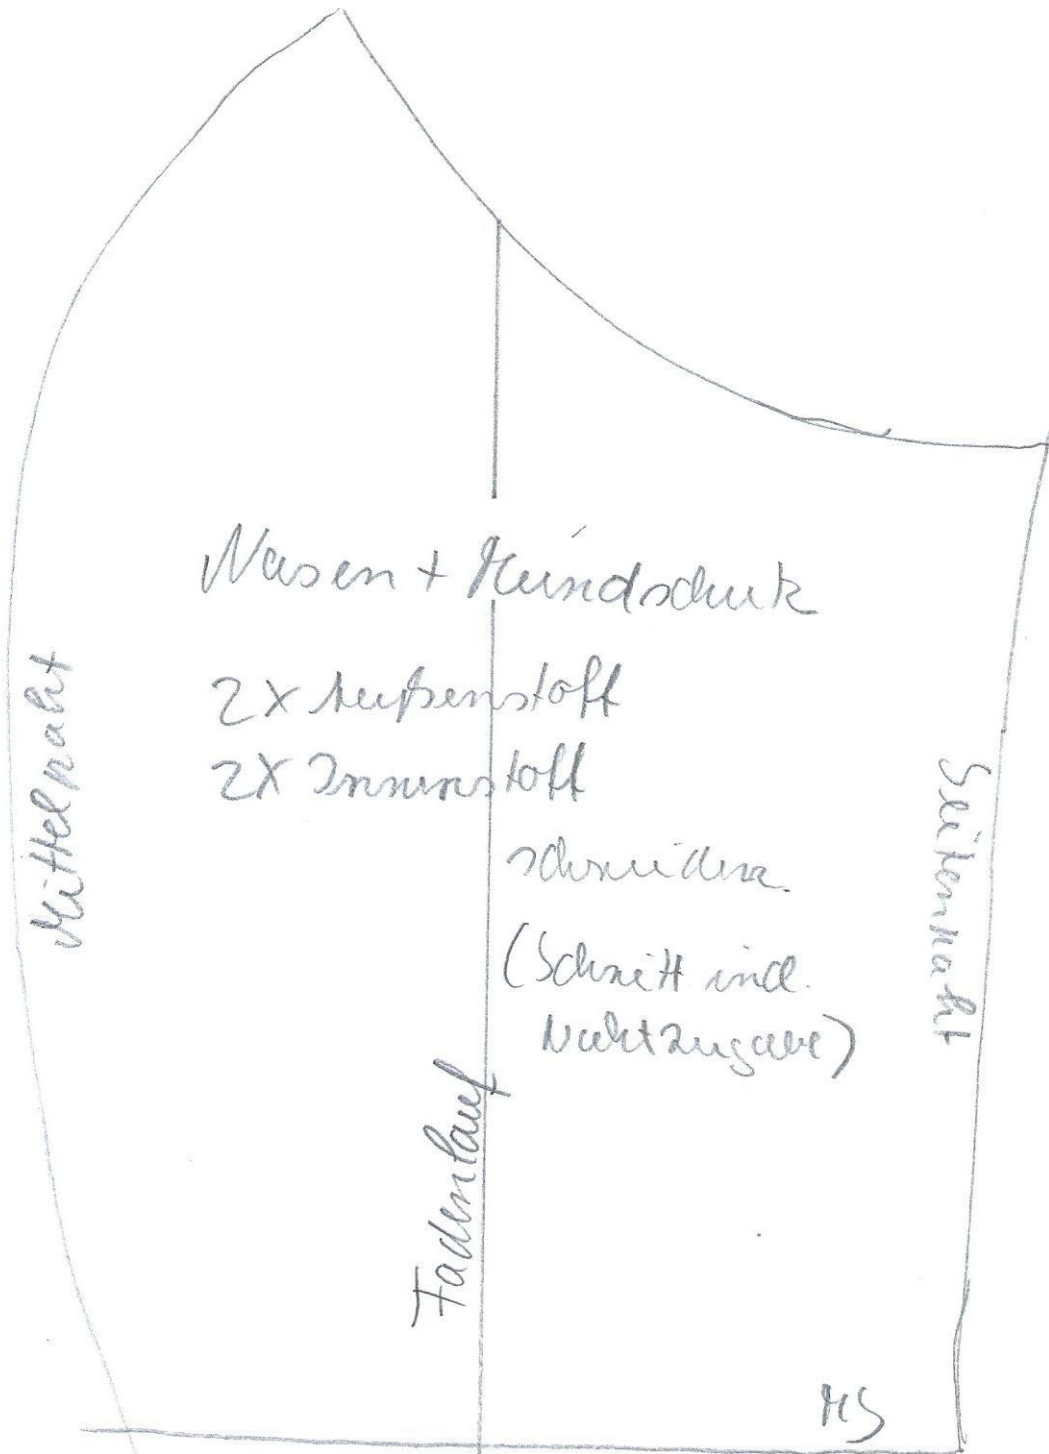 Nasen + Mundschutz
2X Außenstoff
2X Innenstoff
schneiden.
(Schnitt incl.
Nahtzugabe)
Mittelnaht
Seitennaht
Fadenlauf
MS